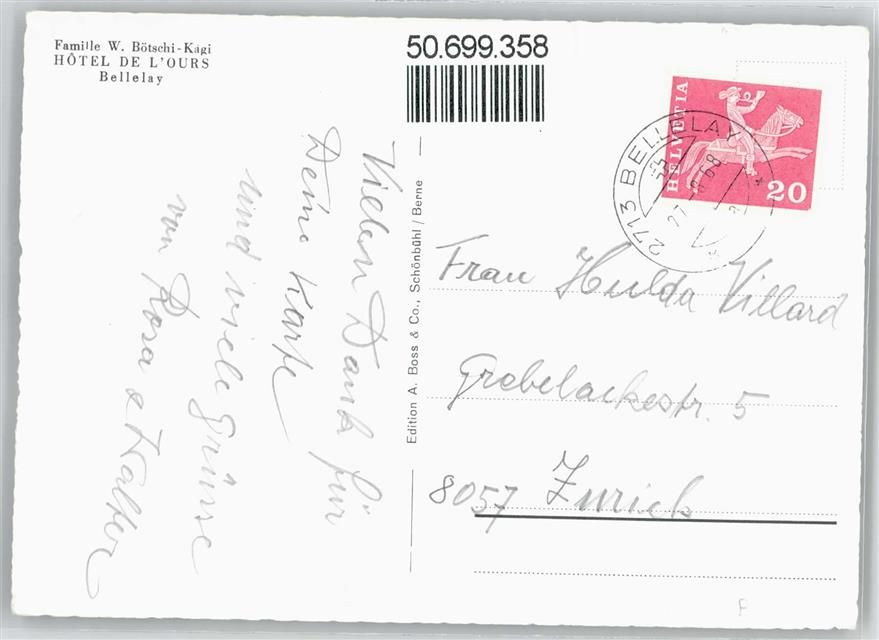 Famille W. Bötschi-Kägi
HÔTEL DE L'OURS
Bellelay
50.699.358
Vielen Dank für
Deine Karte
und viele Grüsse
von Rosa & Walter
Edition A. Boss & Co., Schönbühl / Berne
HELVETIA
20
2713 BELLELAY
8.68
Frau Hulda Villard
Grebelackestr. 5
8057 Zürich